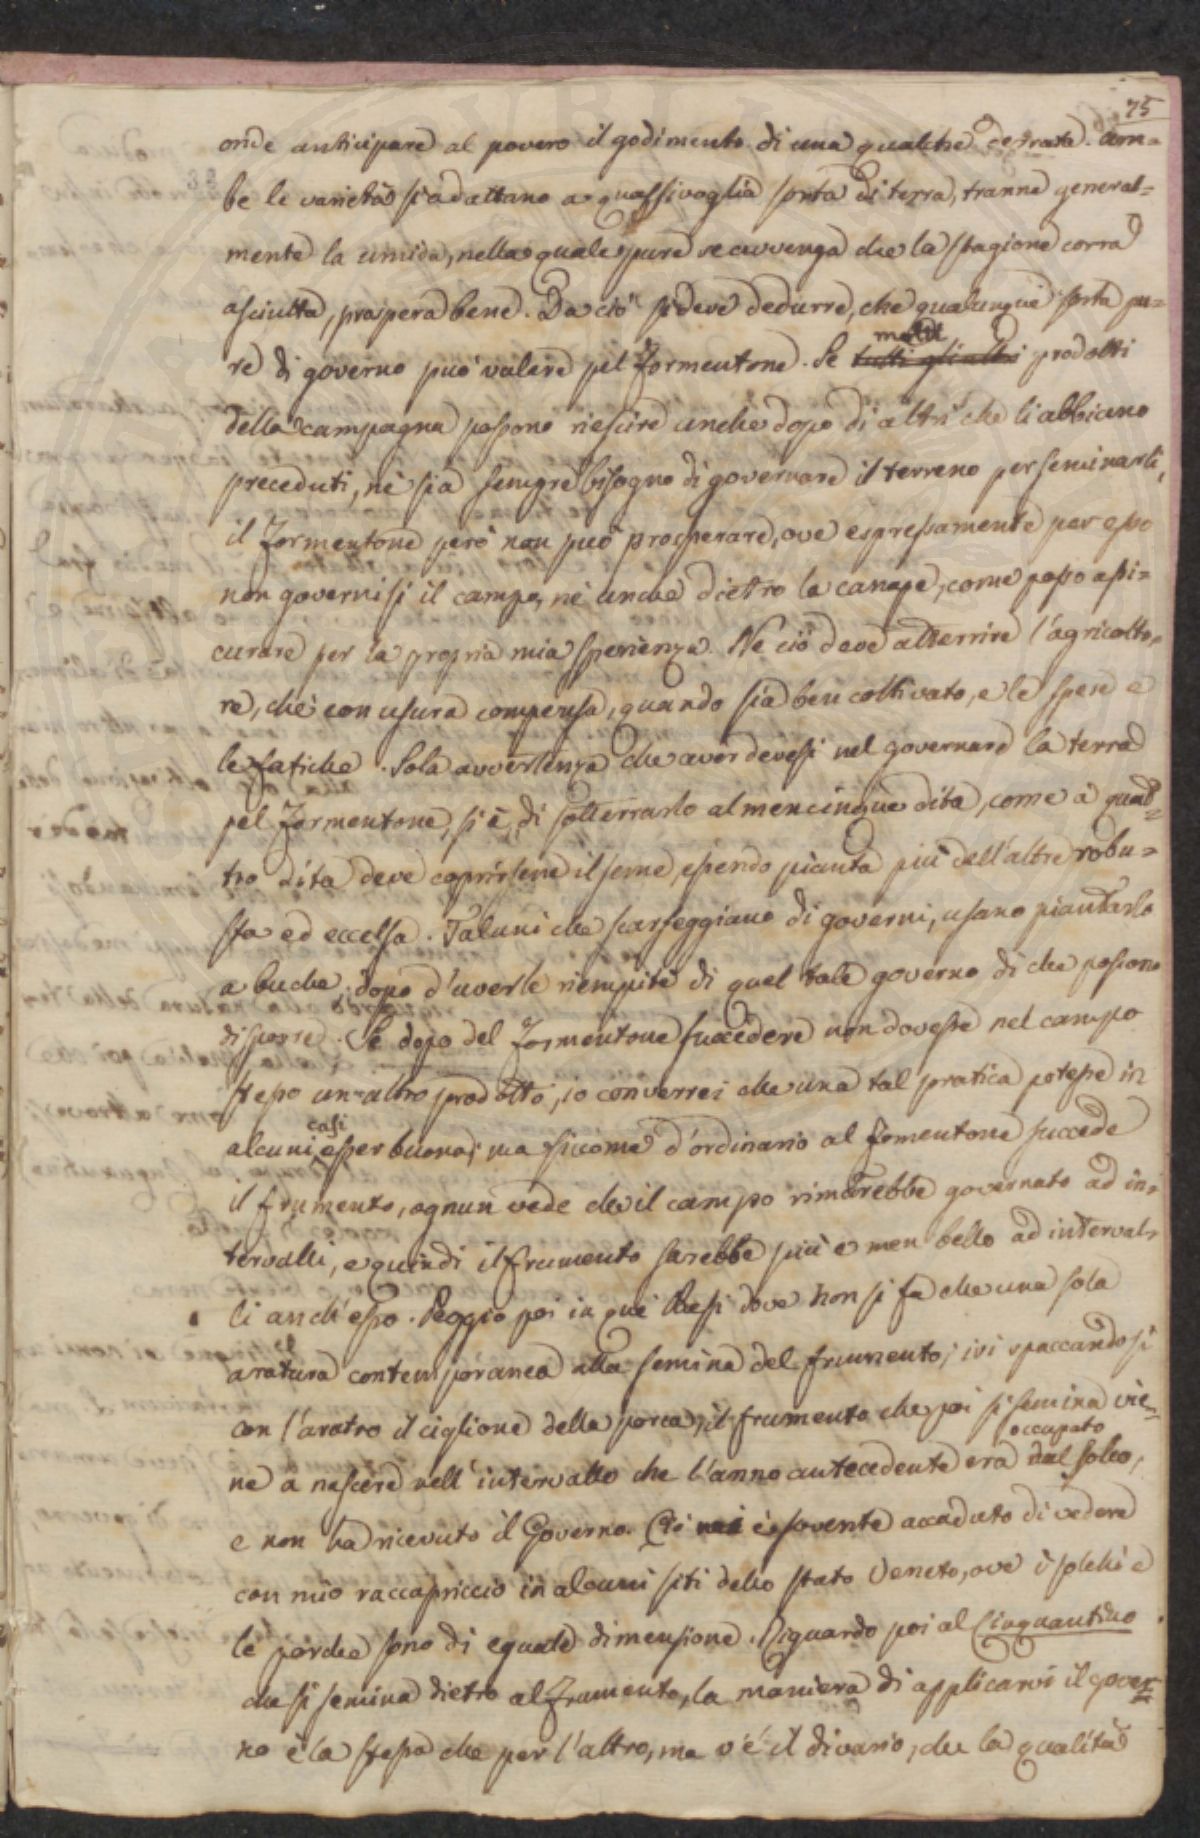 75
onde anticipare al povero il godimento di una qualche derrata. Am=
be le varietà si adattano a qualsivoglia sorta di terra, tranne general=
mente la umida, nella quale pure se avvenga che la stagione corra
asciutta, prospera bene. Da ciò si deve dedurre, che qualunque sorta pu=
re di governo può valere pel formentone. Se tutti gli altri molti prodotti
della campagna possono riescire anche dopo di altri che li abbiano
preceduti, nè sia sempre bisogno di governare il terreno per seminarli,
il formentone però non può prosperare, ove espressamente per esso
non governisi il campo, nè anche dietro la canape, come posso assi=
curare per la propria mia sperienza. Nè ciò deve atterrire l'agricolto=
re, chè con usura compensa, quando sia ben coltivato, e le spese e
le fatiche. Sola avvertenza che aver devesi nel governare la terra
pel formentone, si è di sotterrarlo almen cinque dita, come a quat=
tro dita deve coprirsene il seme, essendo pianta più dell'altre robu=
sta ed eccelsa. Taluni che scarseggiano di governi, usano piantarlo
a buche, dopo d'averle riempite di quel tale governo di che possono
disporre. Se dopo del formentone succedere non dovesse nel campo
stesso un altro prodotto, io converrei che una tal pratica potesse in
alcuni casi esser buona; ma siccome d'ordinario al formentone succede
il frumento, ognun vede che il campo rimarrebbe governato ad in=
tervalli, e quindi il frumento sarebbe più e men bello ad interval=
li anch'esso. Peggio poi in que' Paesi dove non si fa che una sola
aratura contemporanea alla semina del frumento; ivi spaccandosi
con l'aratro il ciglione della porca, il frumento che poi si semina vie=
ne a nascere nell'intervallo che l'anno antecedente era occupato dal solco,
e non ha ricevuto il Governo. Ciò mi è sovente accaduto di vedere
con mio raccapriccio in alcuni siti dello stato Veneto, ove i solchi e
le porche sono di eguale dimensione. Riguardo poi al Cinquantino
che si semina dietro al frumento, la maniera di applicarvi il gover=
no è la stessa che per l'altro, ma v'è il divario, che la qualità